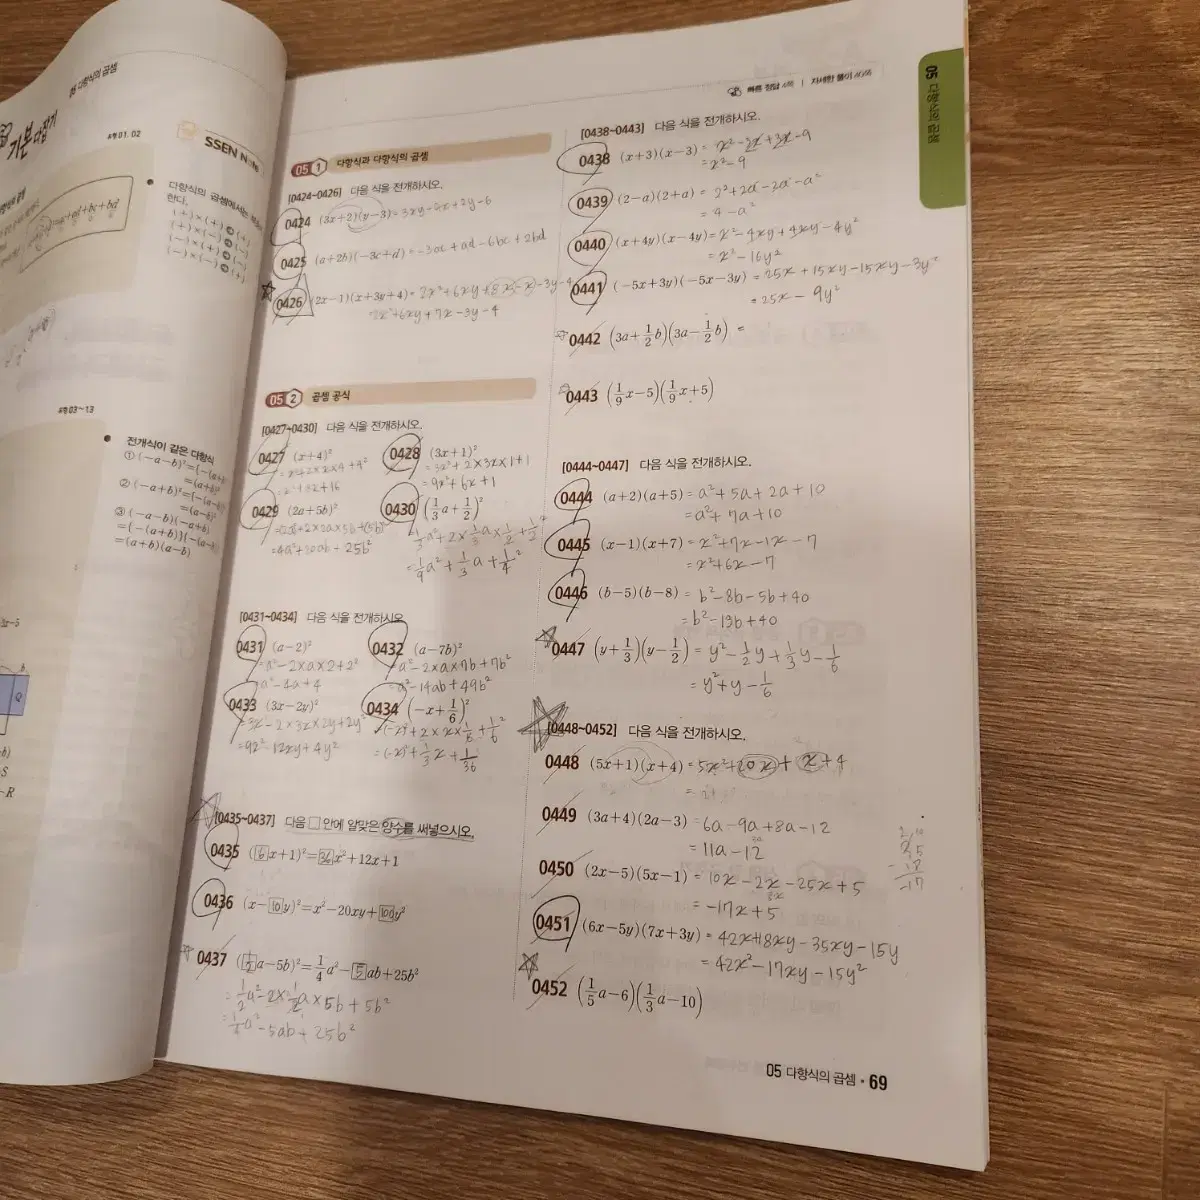 05 다항식의 곱셈
기본 다잡기
유형 01, 02
SSEN NOTE
다항식의 곱셈에서는
한다.
(+)×(+) ➔ (+)
(+)×(−) ➔ (−)
(−)×(+) ➔ (−)
(−)×(−) ➔ (+)
유형 03~13
전개식이 같은 다항식
① (−a−b)²={−(a+b)
=(a+b)²
② (−a+b)²={−(a−b)
=(a−b)²
③ (−a−b)(−a+b)
={−(a+b)}{−(a−b)
=(a+b)(a−b)
빠른 정답 | 자세한 풀이
05 다항식의 곱셈
05 1 다항식과 다항식의 곱셈
[0424~0426] 다음 식을 전개하시오.
0424 (3x+2)(y−3)=3xy−9x+2y−6
0425 (a+2b)(−3c+d)=−3ac+ad−6bc+2bd
0426 (2x−1)(x+3y+4)=2x²+6xy+8x−x−3y−4
2x²+6xy+7x−3y−4
05 2 곱셈 공식
[0427~0430] 다음 식을 전개하시오.
0427 (x+4)²
0428 (3x+1)²
=3x²+2×3x×1+1
=9x²+6x+1
0429 (2a+5b)²
=4a²+20ab+25b²
0430 (1/3a+1/2)²
=1/3a²+2×1/3a×1/2+1/2²
=1/9a²+1/3a+1/4
[0431~0434] 다음 식을 전개하시오.
0431 (a−2)²
=a²−2×a×2+2²
=a²−4a+4
0432 (a−7b)²
=a²−2×a×7b+7b²
=a²−14ab+49b²
0433 (3x−2y)²
=3x−2×3x×2y+2y²
=9x²−12xy+4y²
0434 (−x+1/6)²
=(−x)²+2×x×1/6+1/6²
=(−x)²+1/3x+1/36
[0435~0437] 다음 □ 안에 알맞은 양수를 써넣으시오.
0435 (6x+1)²=36x²+12x+1
0436 (x−10y)²=x²−20xy+100y²
0437 (1/2a−5b)²=1/4a²−5ab+25b²
=1/2a²−2×1/2a×5b+5b²
=1/4a²−5ab+25b²
[0438~0443] 다음 식을 전개하시오.
0438 (x+3)(x−3)=x²−3x+3x−9
=x²−9
0439 (2−a)(2+a)=2²+2a−2a−a²
=4−a²
0440 (x+4y)(x−4y)=x²−4xy+4xy−4y²
=x²−16y²
0441 (−5x+3y)(−5x−3y)=25x+15xy−15xy−3y²
=25x−9y²
0442 (3a+1/2b)(3a−1/2b) =
0443 (1/9x−5)(1/9x+5)
[0444~0447] 다음 식을 전개하시오.
0444 (a+2)(a+5)=a²+5a+2a+10
=a²+7a+10
0445 (x−1)(x+7)=x²+7x−1x−7
=x²+6x−7
0446 (b−5)(b−8)=b²−8b−5b+40
=b²−13b+40
0447 (y+1/3)(y−1/2)=y²−1/2y+1/3y−1/6
=y²+y−1/6
[0448~0452] 다음 식을 전개하시오.
0448 (5x+1)(x+4)=5x²+20x+x+4
0449 (3a+4)(2a−3)=6a−9a+8a−12
=11a−12
0450 (2x−5)(5x−1)=10x−2x−25x+5
=−17x+5
0451 (6x−5y)(7x+3y)=42x+18xy−35xy−15y
=42x²−17xy−15y²
0452 (1/5a−6)(1/3a−10)
05 다항식의 곱셈 • 69